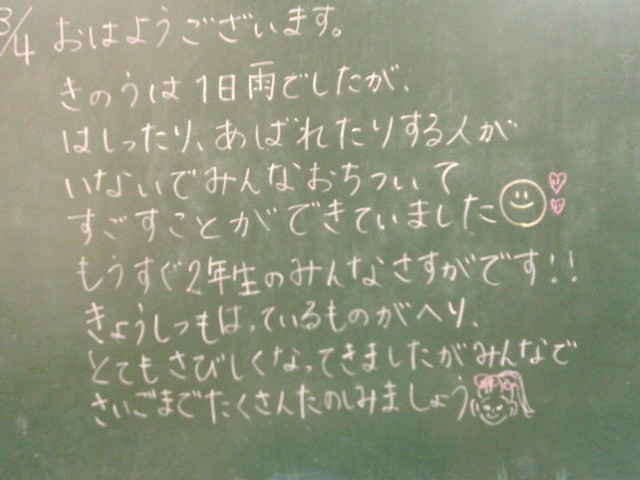 3/4 おはようございます。
きのうは1日雨でしたが、
はしったり、あばれたりする人が
いないでみんなおちついて
すごすことができていました
もうすぐ2年生のみんなさすがです!!
きょうしつもはっているものがへり、
とてもさびしくなってきましたがみんなで
さいごまでたくさんたのしみましょう